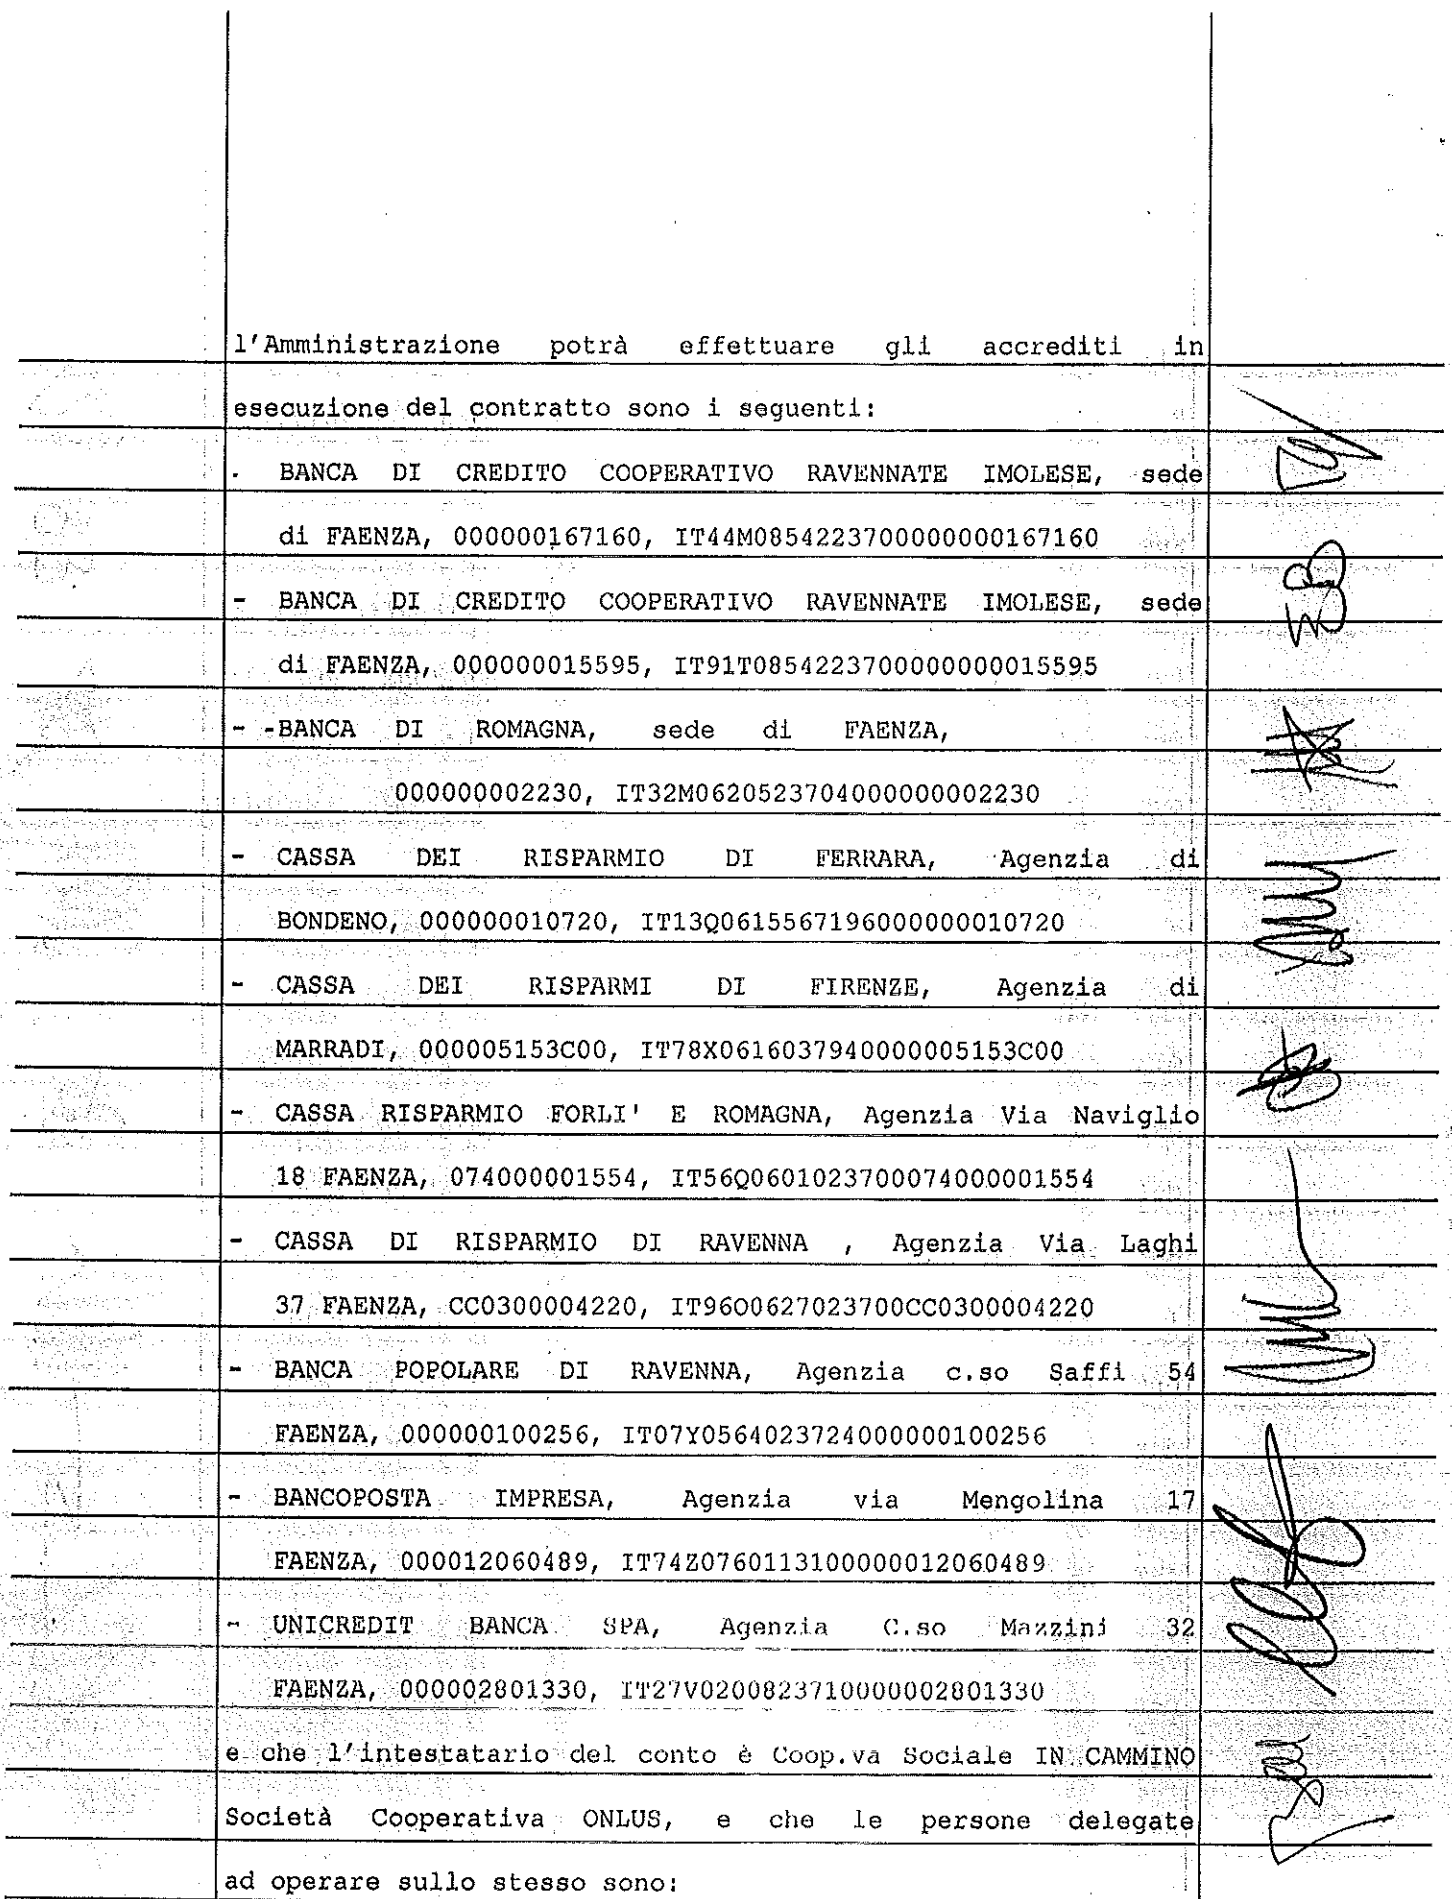 l'Amministrazione potrà effettuare gli accrediti in
esecuzione del contratto sono i seguenti:
- BANCA DI CREDITO COOPERATIVO RAVENNATE IMOLESE, sede
di FAENZA, 000000167160, IT44M0854223700000000167160
- BANCA DI CREDITO COOPERATIVO RAVENNATE IMOLESE, sede
di FAENZA, 000000015595, IT91T0854223700000000015595
- -BANCA DI ROMAGNA, sede di FAENZA,
000000002230, IT32M0620523704000000002230
- CASSA DEI RISPARMIO DI FERRARA, Agenzia di
BONDENO, 000000010720, IT13Q0615567196000000010720
- CASSA DEI RISPARMI DI FIRENZE, Agenzia di
MARRADI, 000005153C00, IT78X0616037940000005153C00
- CASSA RISPARMIO FORLI' E ROMAGNA, Agenzia Via Naviglio
18 FAENZA, 074000001554, IT56Q0601023700074000001554
- CASSA DI RISPARMIO DI RAVENNA , Agenzia Via Laghi
37 FAENZA, CC0300004220, IT96O0627023700CC0300004220
- BANCA POPOLARE DI RAVENNA, Agenzia c.so Saffi 54
FAENZA, 000000100256, IT07Y0564023724000000100256
- BANCOPOSTA IMPRESA, Agenzia via Mengolina 17
FAENZA, 000012060489, IT74Z0760113100000012060489
- UNICREDIT BANCA SPA, Agenzia C.so Mazzini 32
FAENZA, 000002801330, IT27V0200823710000002801330
e che l'intestatario del conto è Coop.va Sociale IN CAMMINO
Società Cooperativa ONLUS, e che le persone delegate
ad operare sullo stesso sono: